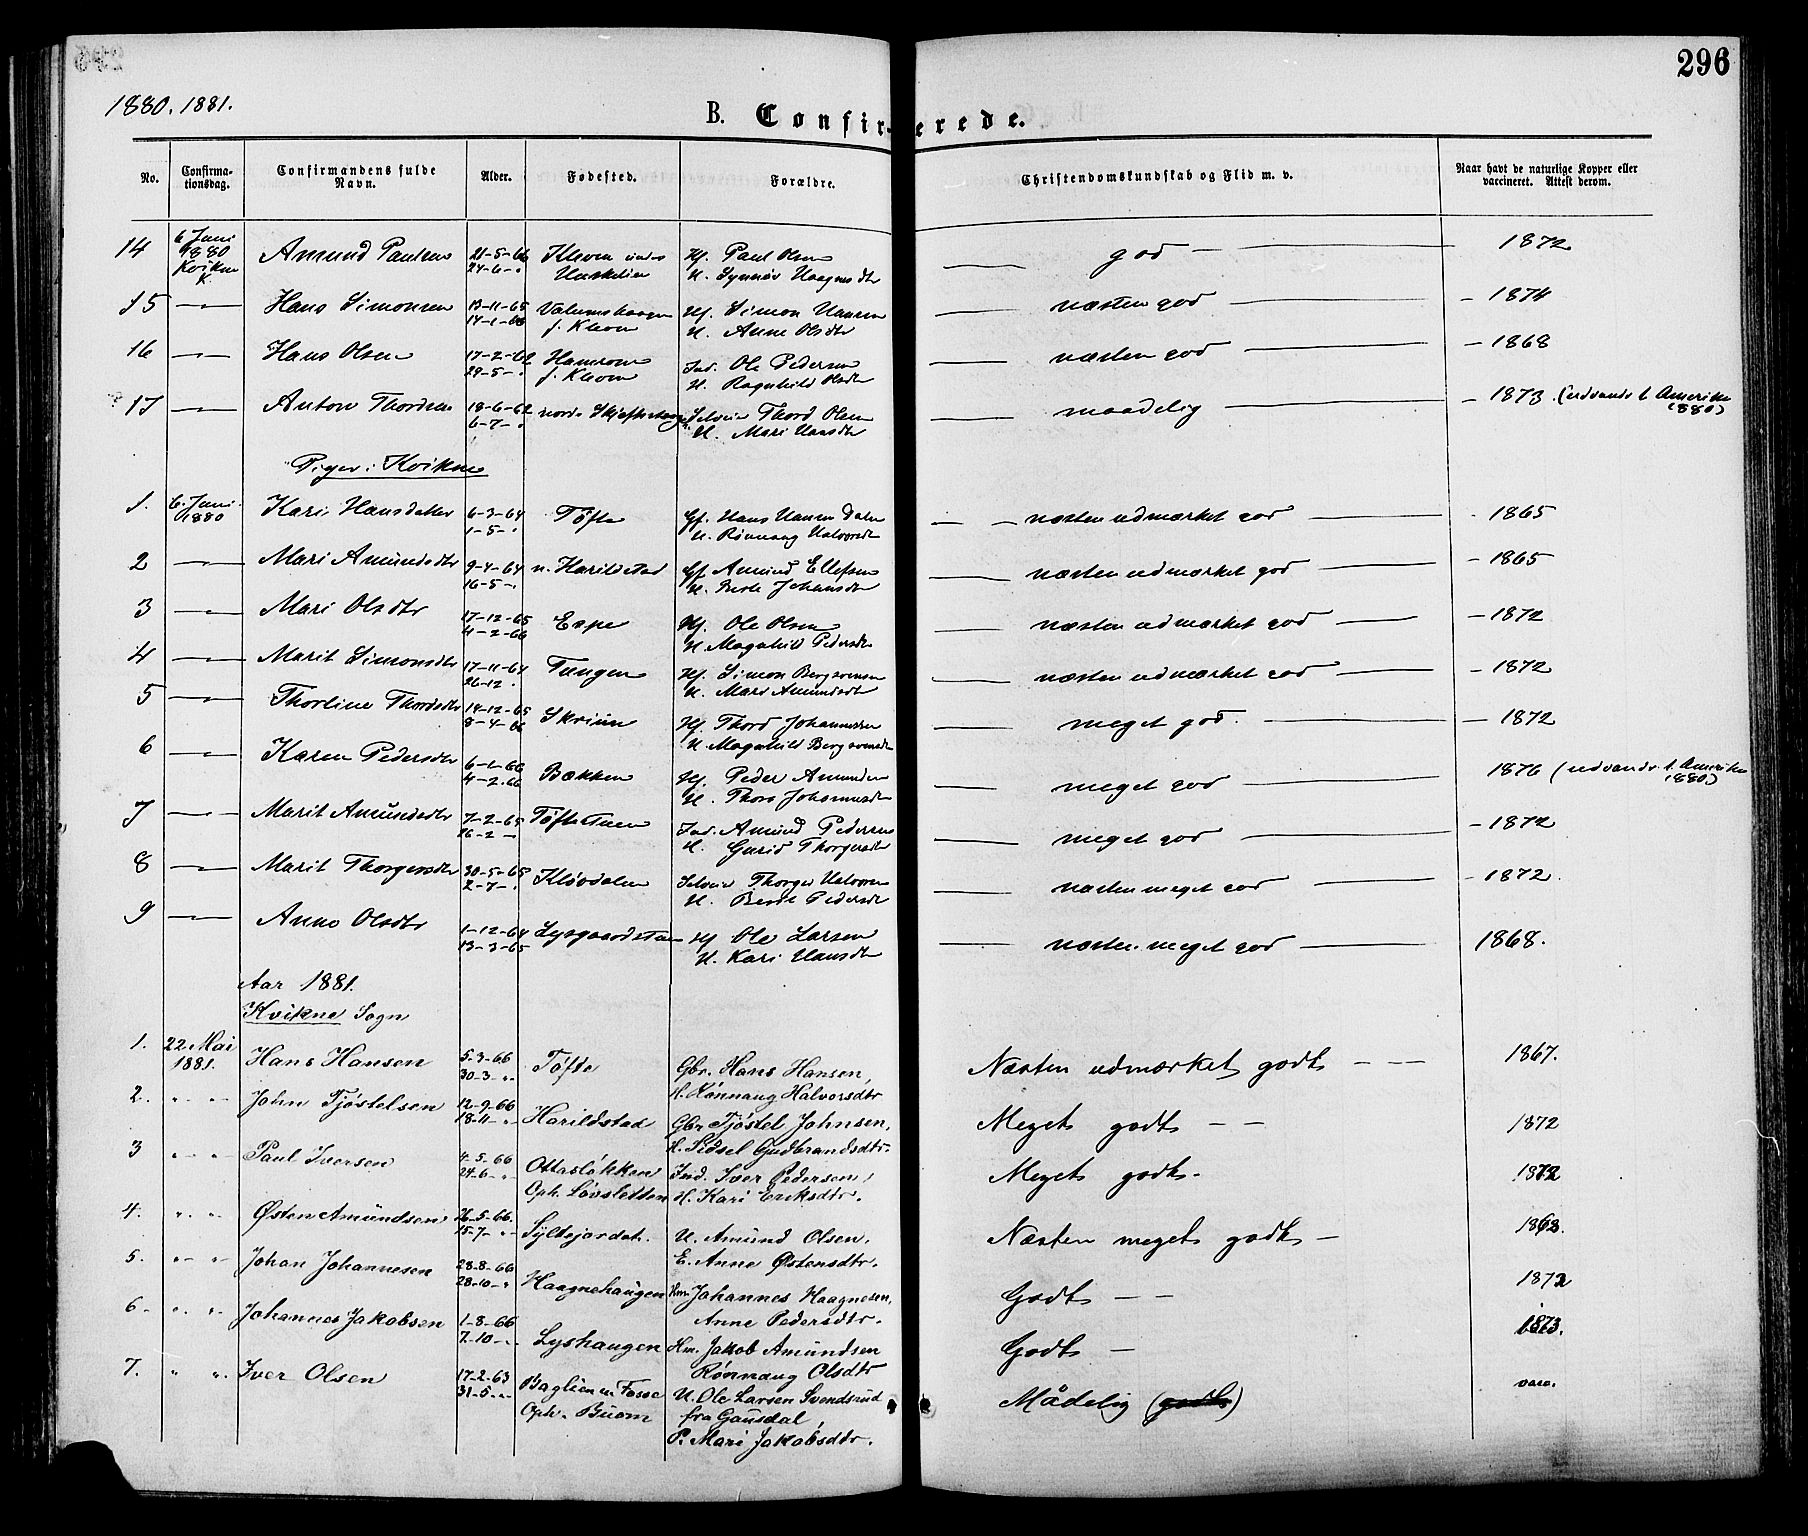 296
1880. 1881.
B. Confirmerede.
No. Confirmationsdag. Confirmandens fulde Navn. Alder. Fødested. Forældre. Christendomskundskab og Flid m. v. Naar havt de naturlige Kopper eller vaccineret. Attest derom.
14 6 Juni 1880 Kvikne K. Amund Paulsen 21-5-66 Kleven under Hf. Paul Olsen god 1872
24-6-" H. Synnøv Haagensdtr
15 -"- Hans Simonsen 13-11-65 Hf. Simon Hansen næsten god - 1874
14-1-66 f. Kleven H. Anne Olsdtr
16 -"- Hans Olsen 17-2-62 Ind. Ole Pedersen næsten god - 1868
29-5-" f. Kleven H. Ragnhild Olsdtr
17 -"- Anton Thordsen 18-6-62 nordr Selveier Thord Olsen maadelig - 1873 (udvandr. t. Amerika
6-7-" H. Mari Hansdtr 1880)
Piger i Kvikne
1. 6. Juni 1880 Kari Hansdatter 6-3-64 Tøfte Gf. Hans Hansen næsten udmærket god - 1865
1-5-" H. Rønnaug Halvorsdtr
2 -"- Mari Amundsdtr 9-4-64 n. Harildstad Gf Amund Ellefsen næsten udmærket god - 1865
16-5-" H. Berte Johansdtr
3 -"- Mari Olsdtr 17-12-65 Espe Hf. Ole Olsen næsten udmærket god - 1872
4-2-66 H. Magnhild Pedersdtr
4 -"- Marit Simonsdtr 17-11-64 Tungen Hf. Simon Bergsvensen næsten udmærket god - 1872
26-12 " H. Mari Amundsdtr
5 -"- Thorline Thordsdtr 14-12-65 Skriun Hf. Thord Johannessen meget god. - 1872
8-4-66 H. Magnhild Bergsvensdtr
6 -"- Karen Pedersdtr 6-1-66 Bækken Hf. Peder Amundsen meget god 1876 (udvandr. t. Amerika
4-2-66 H. Thora Johannesdtr 1880)
7 -"- Marit Amundsdtr 7-2-65 Tøftestuen Ind. Amund Pedersen meget god - 1872
26-2 - H. Gurid Thorgersdtr
8 -"- Marit Thorgersdtr 30-5-65 Kløvdalen Selveier Thorger Halvorsen næsten meget god - 1872.
2-7-" H. Berte Pedersdtr
9 -"- Anne Olsdtr 1-12-64 Lysgaardstuen Hf Ole Larsen næsten meget god 1868.
13-3-65 H. Kari Hansdtr
Aar 1881.
Kvikne Sogn
1. 22. Mai 1881. Hans Hansen 5-3-66 Tøfte Gbr. Hans Hansen, Næsten udmærket godt 1867.
30-3-" H. Rønnaug Halvorsdtr
2. " " " John Tjøstelsen 12-9-66 Harildstad Gbr Tjøstel Johnsen, Meget godt 1872
18-11-" H. Sidsel Gudbrandsdtr.
3 " " " Paul Iversen 4-5-66 Ottasløkken Ind. Iver Pedersen, Meget godt. 1872
24-6-" Oph. Løvsletten H. Kari Eriksdtr.
4. " " " Østen Amundsen 26-5-66. Syltejordet. U. Amund Olsen, Næsten meget godt
15-7-" E. Anne Østensdtr.
5. " " " Johan Johannesen 28-8-66 Haagnehaugen Hm Johannes Haagnesen, Godt 1872
28-10-" Anne Pedersdtr.
6 " " " Johannes Jakobsen 1-8-66 Lyshaugen Hm. Jakob Amundsen Godt 1873.
7-10-" Rønnaug Olsdtr
7. " " Iver Olsen 17-2-63 Baglien u. Fosse U. Ole Larsen Svendsrud Mådelig (godt) vacc.
31-5-" Oph. Buom fra Gausdal,
P. Mari Jakobsdtr.